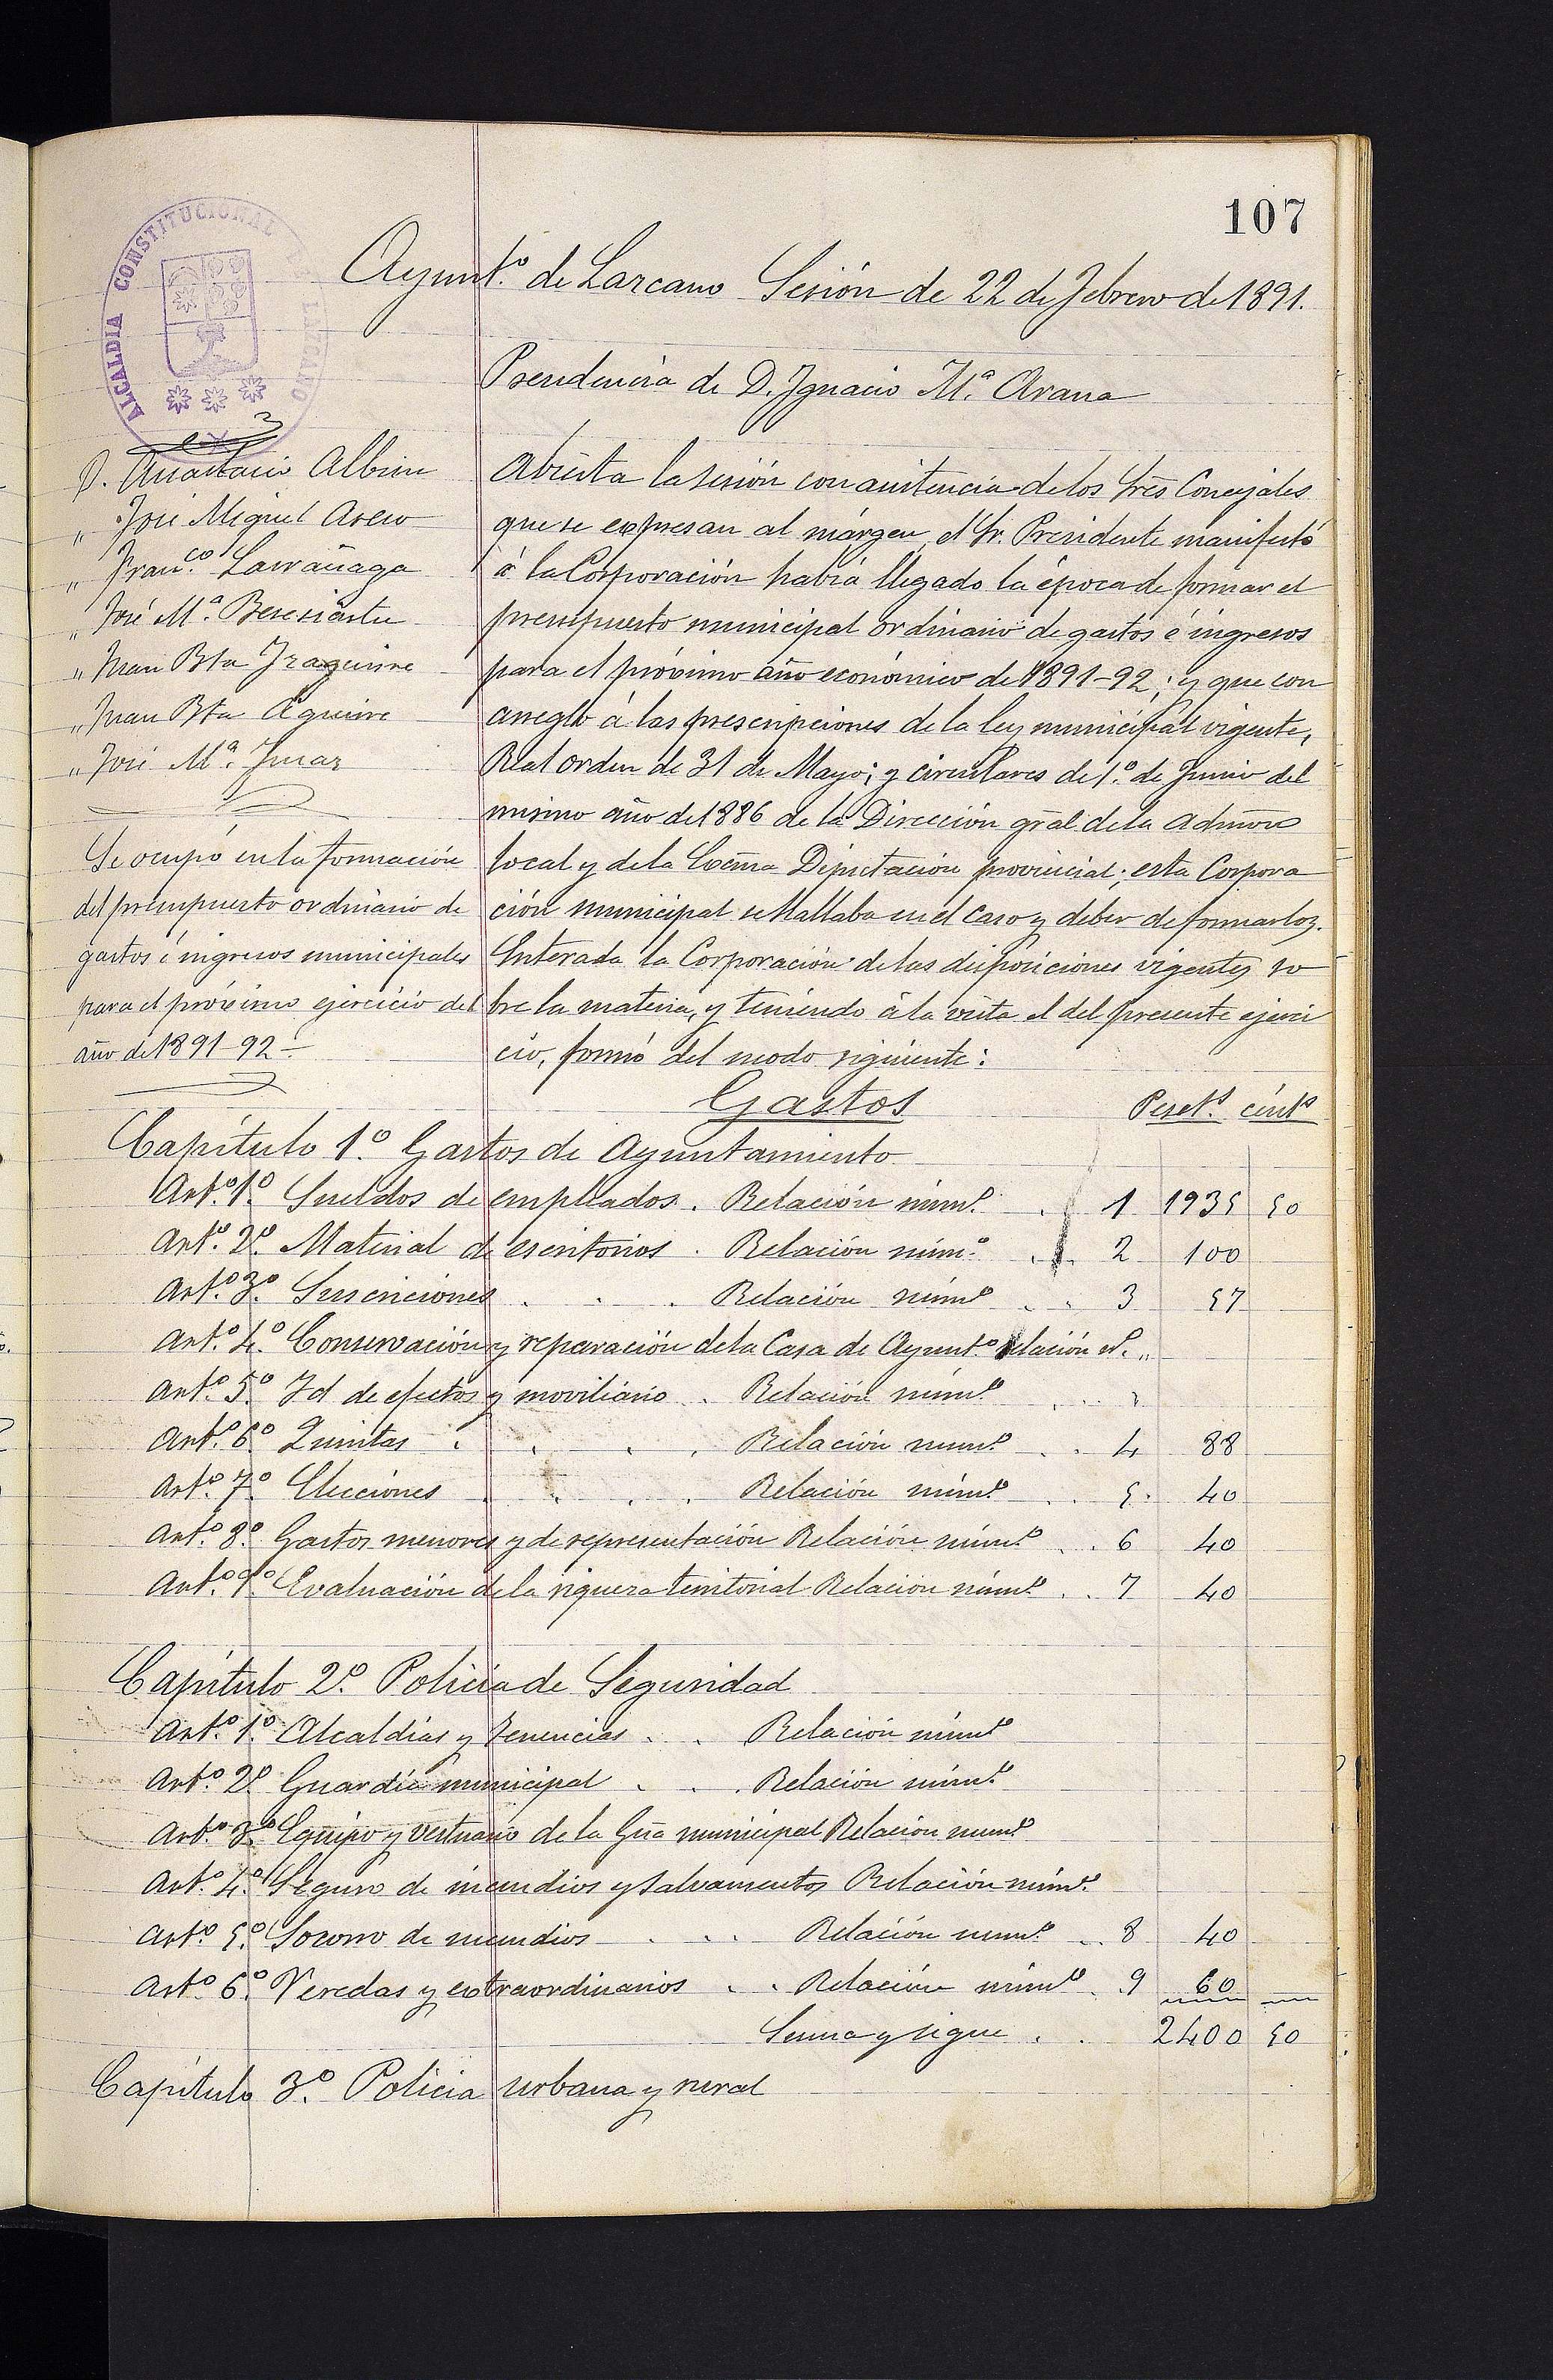 107
ALCALDIA CONSTITUCIONAL DE LAZCANO
Ayunt.º de Lazcano Sesión de 22 de Febrero de 1891.
Presidencia de D. Ignacio M.ª Arana
D. Anastacio Albisu
„ José Miguel
„ Fran.co Larrañaga
„ José M.ª Beresiartu
„ Juan Bta Irazurre
„ Juan Bta Aguirre
„ José M.ª
Se ocupó en la formación
del presupuesto ordinario de
gastos é ingresos municipales
para el próximo ejercicio del
año de 1891-92.
Abierta la sesión con asistencia de los Srēs Concejales
que se expresan al márgen, el Sr. Presidente manifestó
á la Corporación habia llegado la época de formar el
presupuesto municipal ordinario de gastos é ingresos
para el próximo año económico de 1891-92; y que con
arreglo á las prescripciones de la ley municipal vigente,
Real orden de 31 de Mayo; y circulares de 1.º de Junio del
mismo año de 1886 de la Dirección gral de la Admōn
local y de la Excma Diputación provincial; esta Corpora
ción municipal se hallaba en el caso y deber de formarlos.
Enterada la Corporación de las disposiciones vigentes so
bre la materia, y teniendo á la vista el del presente ejerci
cio, formó del modo siguiente:
Gastos Peset.s cént.s
Capítulo 1.º Gastos de Ayuntamiento
Art.º 1.º Sueldos de empleados . Relación núm.º . 1 1935 50
Art.º 2.º Material de escritorios . Relación núm.º . . 2 100
Art.º 3.º Suscriciones . . . Relación núm.º . . 3 57
Art.º 4.º Conservación y reparación de la Casa de Ayunt.º relación nº. „
Art.º 5.º Id de efectos y moviliario . Relación núm.º . . „
Art.º 6.º Quintas . . . . Relación núm.º . . 4 88
Art.º 7.º Elecciones . . . . Relación núm.º . . 5. 40
Art.º 8.º Gastos menores y de representación Relación núm.º . . 6 40
Art.º 9.º Evaluación de la riqueza territorial Relación núm.º . . 7 40
Capítulo 2.º Policia de Seguridad
Art.º 1.º Alcaldías y Tenencias . . Relación núm.º
Art.º 2.º Guardia municipal . . . Relación núm.º
Art.º 3.º Equipo y vestuario de la Gūa municipal Relación núm.º
Art.º 4.º Seguro de incendios y salvamentos Relación núm.º
Art.º 5.º Socorro de incendios . . . Relación núm.º . . 8 40
Art.º 6.º Veredas y extraordinarios . . Relación núm.º . 9 60
Suma y sigue . . 2400 50
Capítulo 3.º Policia urbana y rural